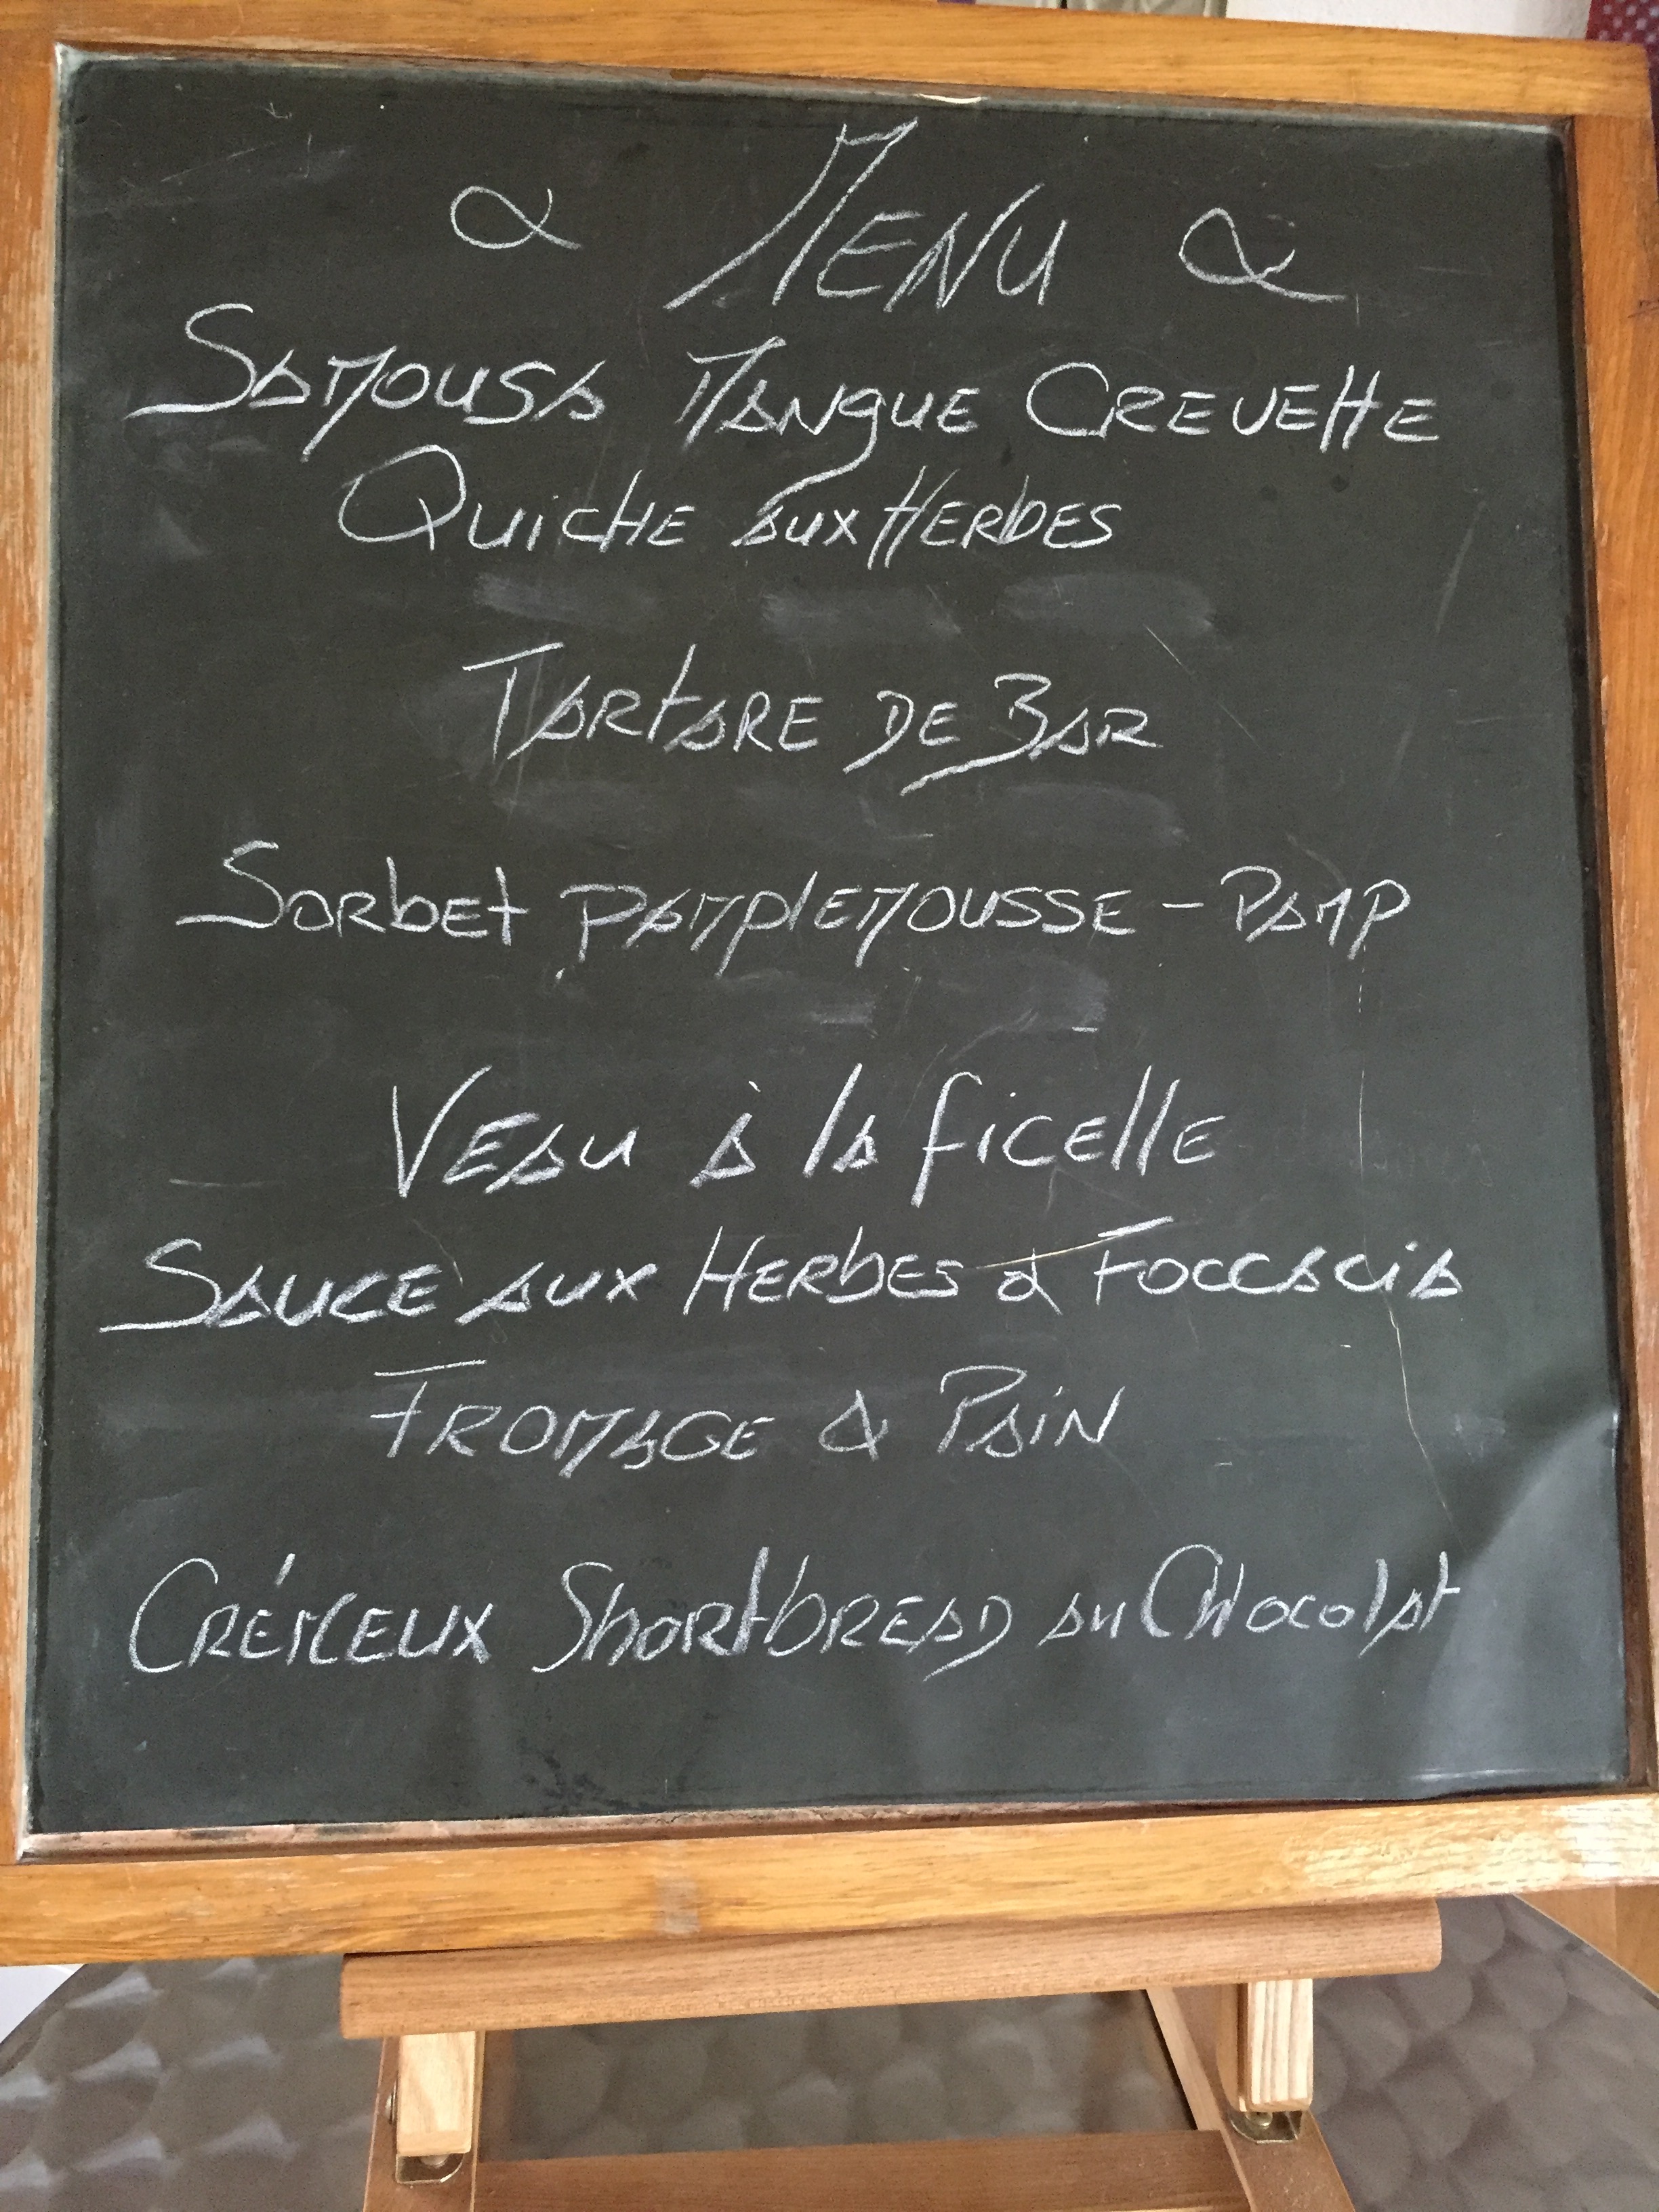 Menu
Samousa Mangue Crevette
Quiche aux Herbes
Tartare de Bar
Sorbet pamplemousse - Pamp
Veau à la ficelle
Sauce aux Herbes & Foccacia
Fromage & Pain
Crémeux Shortbread au Chocolat